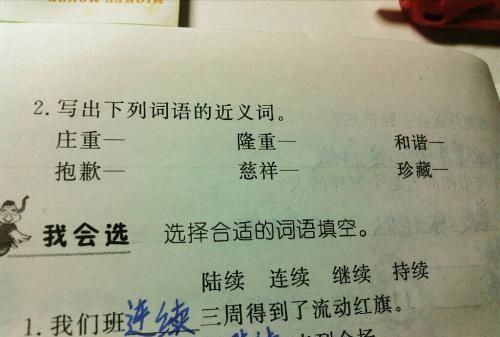 2.写出下列词语的近义词。
庄重— 隆重— 和谐—
抱歉— 慈祥— 珍藏—
我会选 选择合适的词语填空。
陆续 连续 继续 持续
1.我们班连续三周得到了流动红旗。